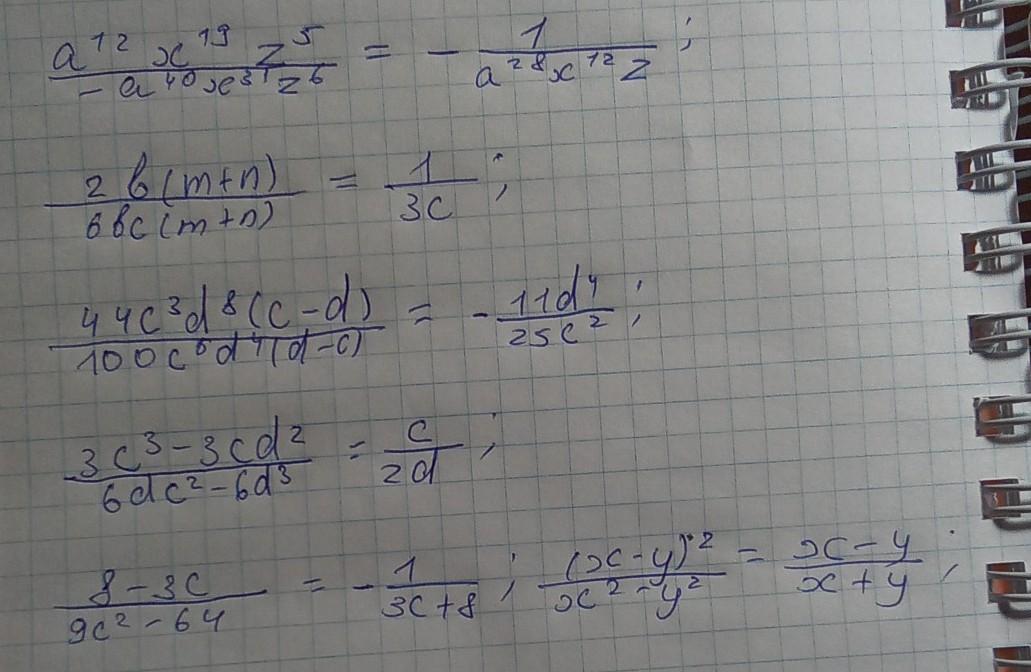 a¹² x¹⁹ z⁵ / -a⁴⁰x³¹z⁶ = - 1 / a²⁸x¹²z ;
2b(m+n) / 6bc(m+n) = 1 / 3c ;
44c³d⁸(c-d) / 100c⁵d⁴(d-c) = - 11d⁴ / 25c² ;
3c³-3cd² / 6dc²-6d³ = c / 2d ;
8-3c / 9c²-64 = - 1 / 3c+8 ; (x-y)² / x²-y² = x-y / x+y ;